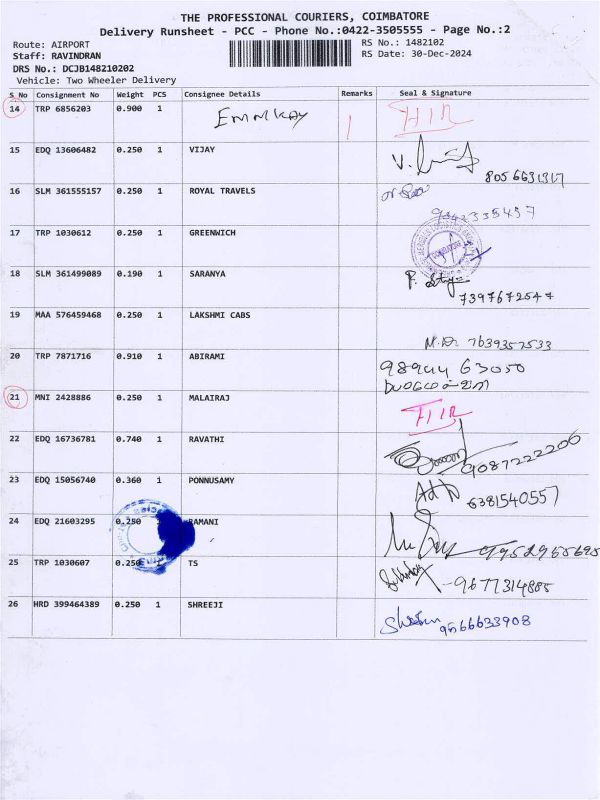 THE PROFESSIONAL COURIERS, COIMBATORE
Delivery Runsheet - PCC - Phone No.:0422-3505555 - Page No.:2
Route: AIRPORT RS No.: 1482102
Staff: RAVINDRAN RS Date: 30-Dec-2024
DRS No.: DCJB148210202
Vehicle: Two Wheeler Delivery
S No Consignment No Weight PCS Consignee Details Remarks Seal & Signature
14 TRP 6856203 0.900 1 EMMKAY
15 EDQ 13606482 0.250 1 VIJAY
8056631317
16 SLM 361555157 0.250 1 ROYAL TRAVELS
9342335457
17 TRP 1030612 0.250 1 GREENWICH
18 SLM 361499089 0.190 1 SARANYA
7397672547
19 MAA 576459468 0.250 1 LAKSHMI CABS
7639357533
20 TRP 7871716 0.910 1 ABIRAMI
63050
21 MNI 2428886 0.250 1 MALAIRAJ
22 EDQ 16736781 0.740 1 RAVATHI
9087222206
23 EDQ 15056740 0.360 1 PONNUSAMY
6381540557
24 EDQ 21603295 0.250 RAMANI
25 TRP 1030607 0.250 1 TS
9677314885
26 HRD 399464389 0.250 1 SHREEJI
9566633908